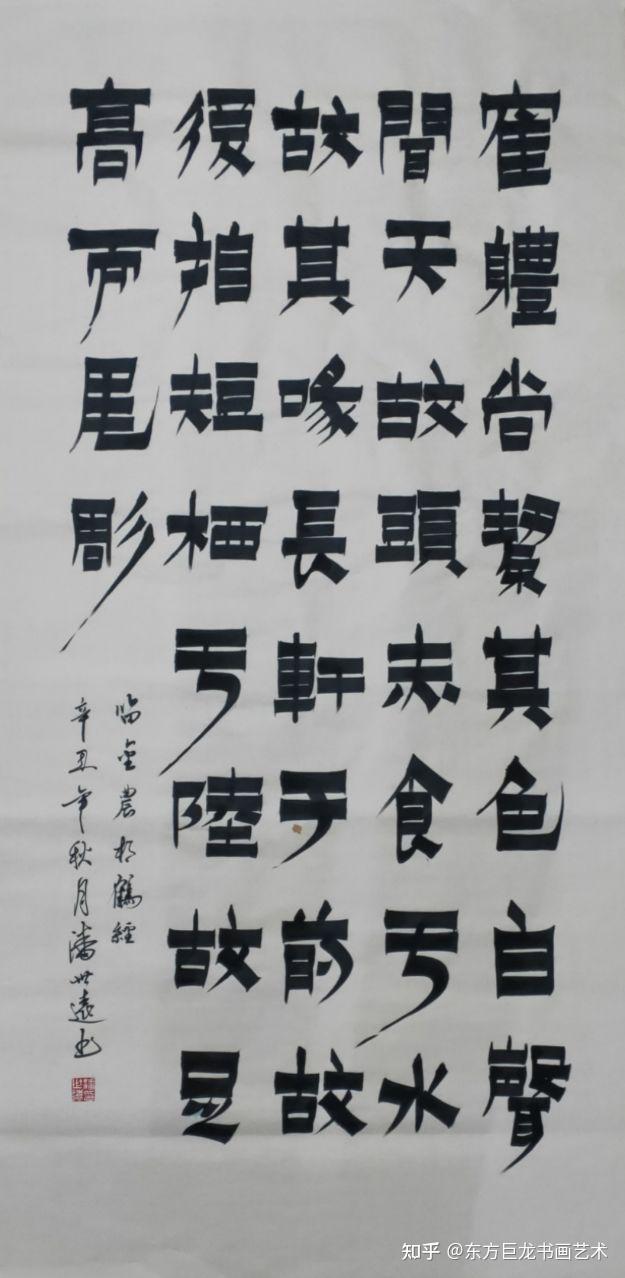 寉軆尚絜其色白聲
聞天故頭赤食亏水
故其喙長軒于前故
後指短栖亏陸故足
高而尾彫
临金農相鶴經
辛丑年秋月潘世遠书
知乎 @东方巨龙书画艺术